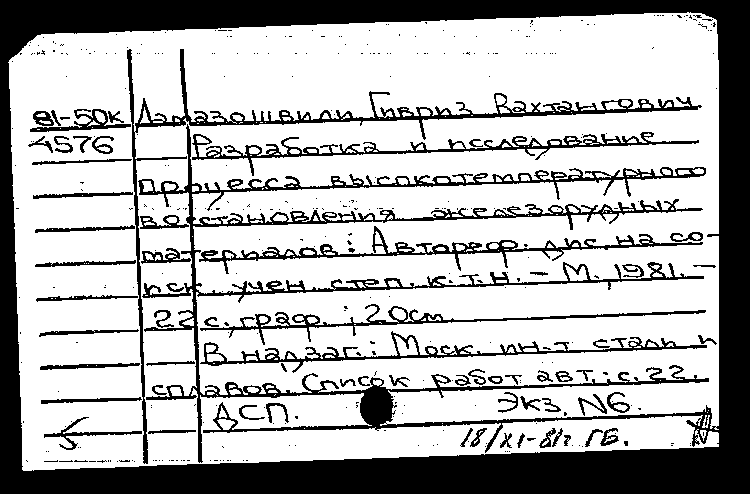 81-50к Ламазошвили, Гивриз Вахтангович
4576 Разработка и исследование
процесса высокотемпературного
восстановления железорудных
материалов : Автореф. дис. на со-
иск. учен. степ. к.т.н. – М., 1981. –
22 с., граф. ; 20см.
В надзаг.: Моск. ин-т стали и
сплавов. Список работ авт.: с. 22.
ДСП. Экз. N6.
5 18/XI-81г ГБ.